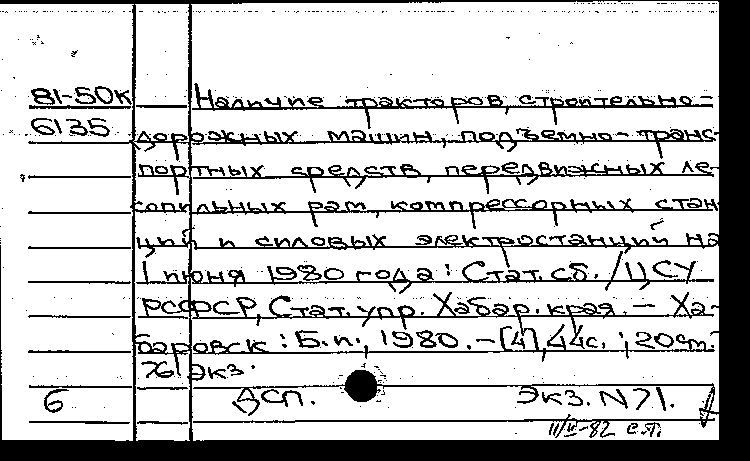 81-50к Наличие тракторов, строительно-
6135 дорожных машин, подъемно-транс-
портных средств, передвижных ле-
сопильных рам, компрессорных стан-
ций и силовых электростанций на
1 июня 1980 года : Стат. сб. / ЦСУ
РСФСР, Стат. упр. Хабар. края. — Ха-
баровск : Б.и., 1980. — [4], 44с. ; 20см.
76 экз.
6 ДСП. Экз. N 71.